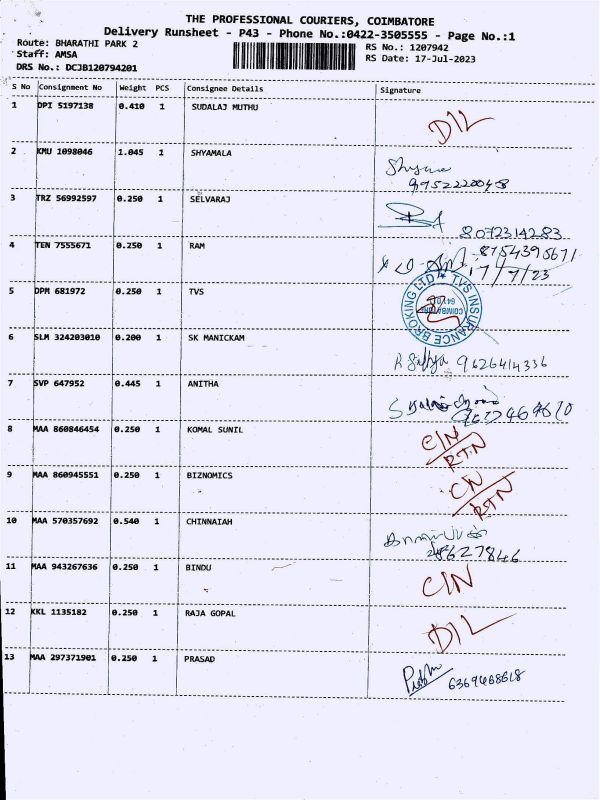 THE PROFESSIONAL COURIERS, COIMBATORE
Delivery Runsheet - P43 - Phone No.:0422-3505555 - Page No.:1
Route: BHARATHI PARK 2 RS No.: 1207942
Staff: AMSA RS Date: 17-Jul-2023
DRS No.: DCJB120794201
S No Consignment No Weight PCS Consignee Details Signature
1 DPI 5197138 0.410 1 SUDALAJ MUTHU DIL
2 KMU 1098046 1.045 1 SHYAMALA
3 TRZ 56992597 0.250 1 SELVARAJ
8072314283
4 TEN 7555671 0.250 1 RAM 8754395671
17/7/23
5 DPM 681972 0.250 1 TVS TVS INSURANCE BROKING LTD
6 SLM 324203010 0.200 1 SK MANICKAM 9626414336
7 SVP 647952 0.445 1 ANITHA
8 MAA 860846454 0.250 1 KOMAL SUNIL CIN
RTN
9 MAA 860945551 0.250 1 BIZNOMICS CN
RTN
10 MAA 570357692 0.540 1 CHINNAIAH
11 MAA 943267636 0.250 1 BINDU CIN
12 KKL 1135182 0.250 1 RAJA GOPAL DIL
13 MAA 297371901 0.250 1 PRASAD 6369468618